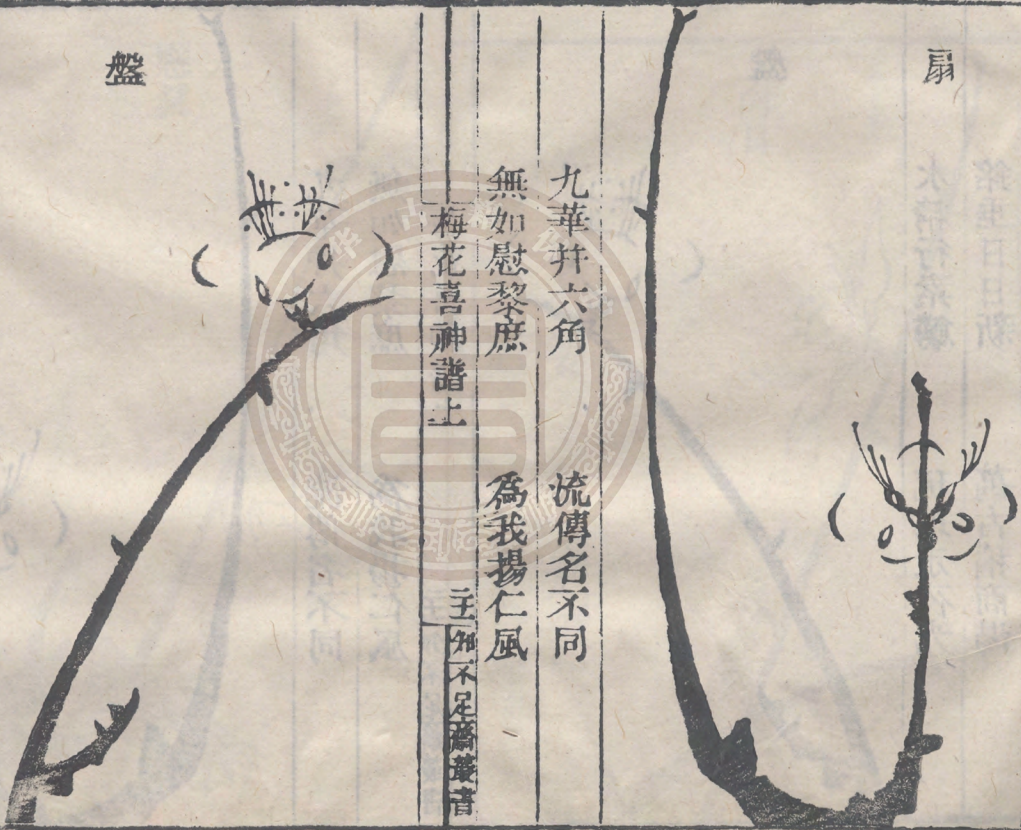 扇
九華并六角　流傳名不同
無如慰黎庶　為我揚仁風
梅花喜神譜上　知不足齋叢書
盤